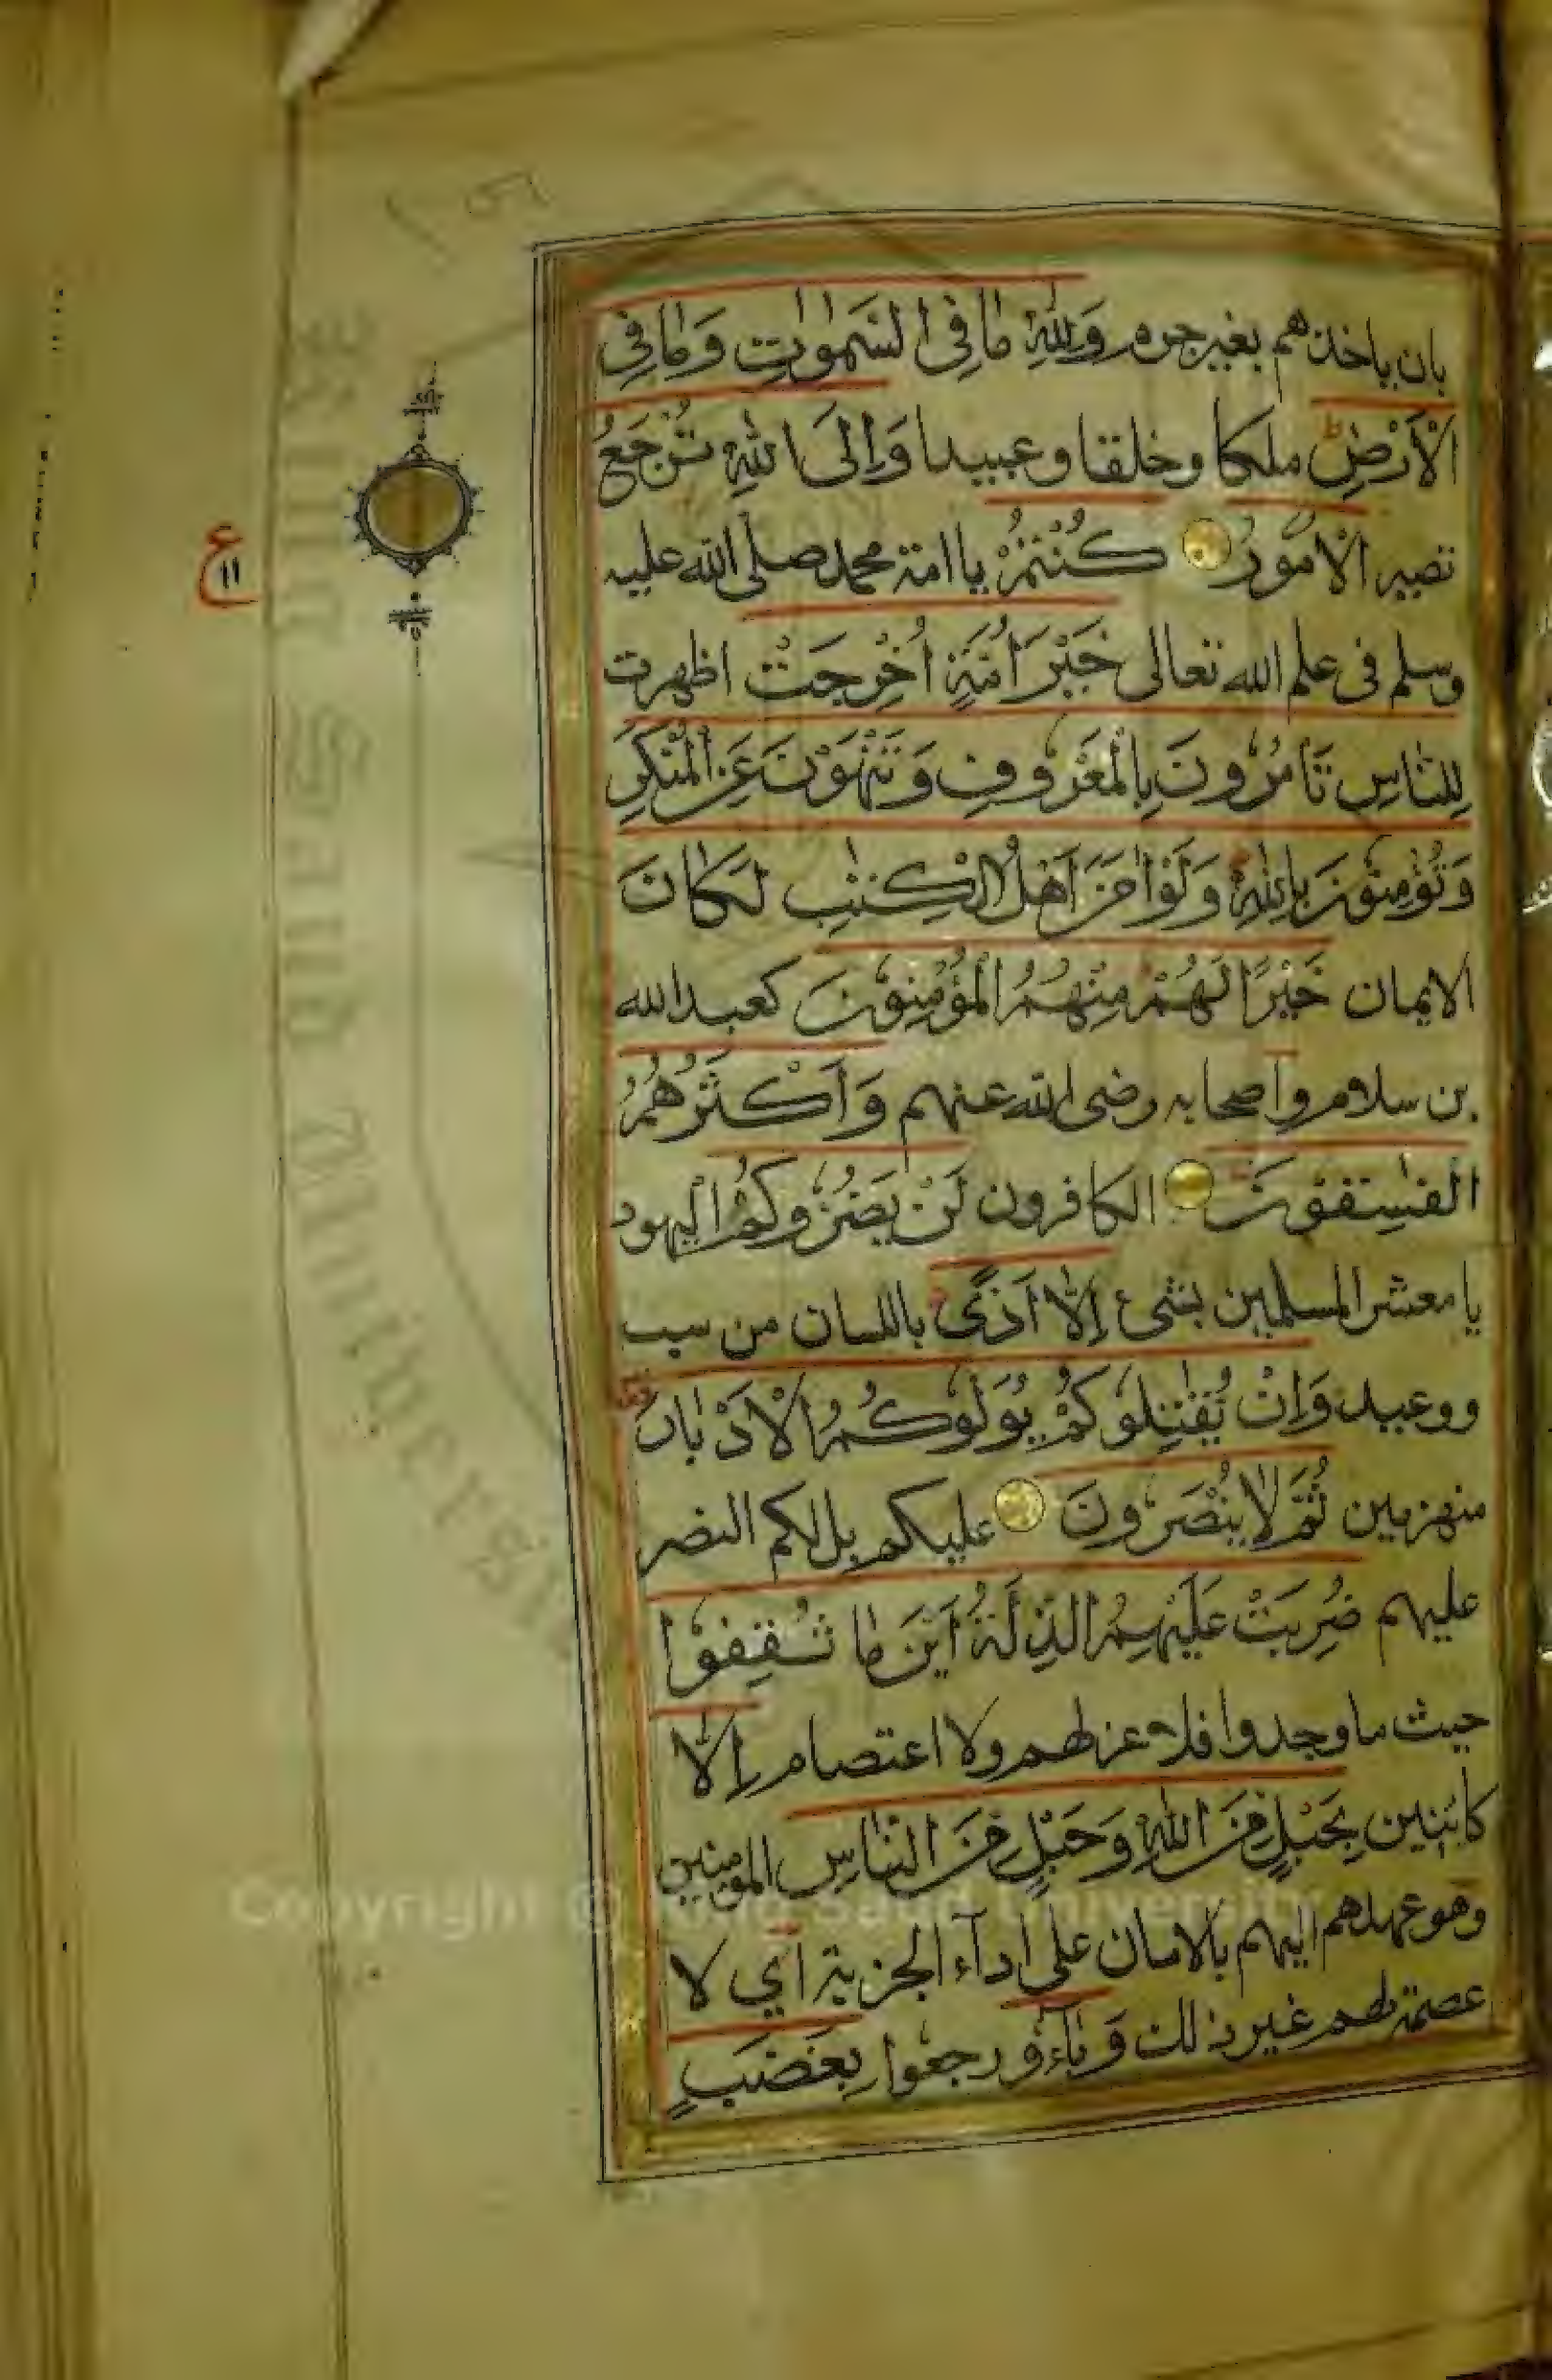 بان ياخذهم بغير جرم وَلِلّٰهِ مَا فِي السَّمٰوٰتِ وَمَا فِي
الْاَرْضِ ط ملكا وخلقا وعبيدا وَاِلَى اللّٰهِ تُرْجَعُ
تصير الْاُمُوْرُ كُنْتُمْ يا امة محمد صلى الله عليه
وسلم فى علم الله تعالى خَيْرَ اُمَّةٍ اُخْرِجَتْ اظهرت
لِلنَّاسِ تَاْمُرُوْنَ بِالْمَعْرُوْفِ وَتَنْهَوْنَ عَنِ الْمُنْكَرِ
وَتُؤْمِنُوْنَ بِاللّٰهِ وَلَوْ اٰمَنَ اَهْلُ الْكِتٰبِ لَكَانَ
الايمان خَيْرًا لَهُمْ مِنْهُمُ الْمُؤْمِنُوْنَ كعبد الله
بن سلام واصحابه رضى الله عنهم وَاَكْثَرُهُمُ
الْفٰسِقُوْنَ الكافرون لَنْ يَضُرُّوْكُمْ اليهود
يا معشر المسلمين بشىء اِلَّا اَذًى باللسان من سب
ووعيد وَاِنْ يُقٰتِلُوْكُمْ يُوَلُّوْكُمُ الْاَدْبَارَ
منهزمين ثُمَّ لَا يُنْصَرُوْنَ عليكم بل لكم النصر
عليهم ضُرِبَتْ عَلَيْهِمُ الذِّلَّةُ اَيْنَ مَا ثُقِفُوْا
حيث ما وجدوا فلا عز لهم ولا اعتصام اِلَّا
كائنين بِحَبْلٍ مِنَ اللّٰهِ وَحَبْلٍ مِنَ النَّاسِ المؤمنين
وهو عهدهم اليهم بالامان على اداء الجزية اي لا
عصمة لهم غير ذلك وَبَآءُوْ رجعوا بِغَضَبٍ
ع
١١
King Saud University
Copyright © King Saud University